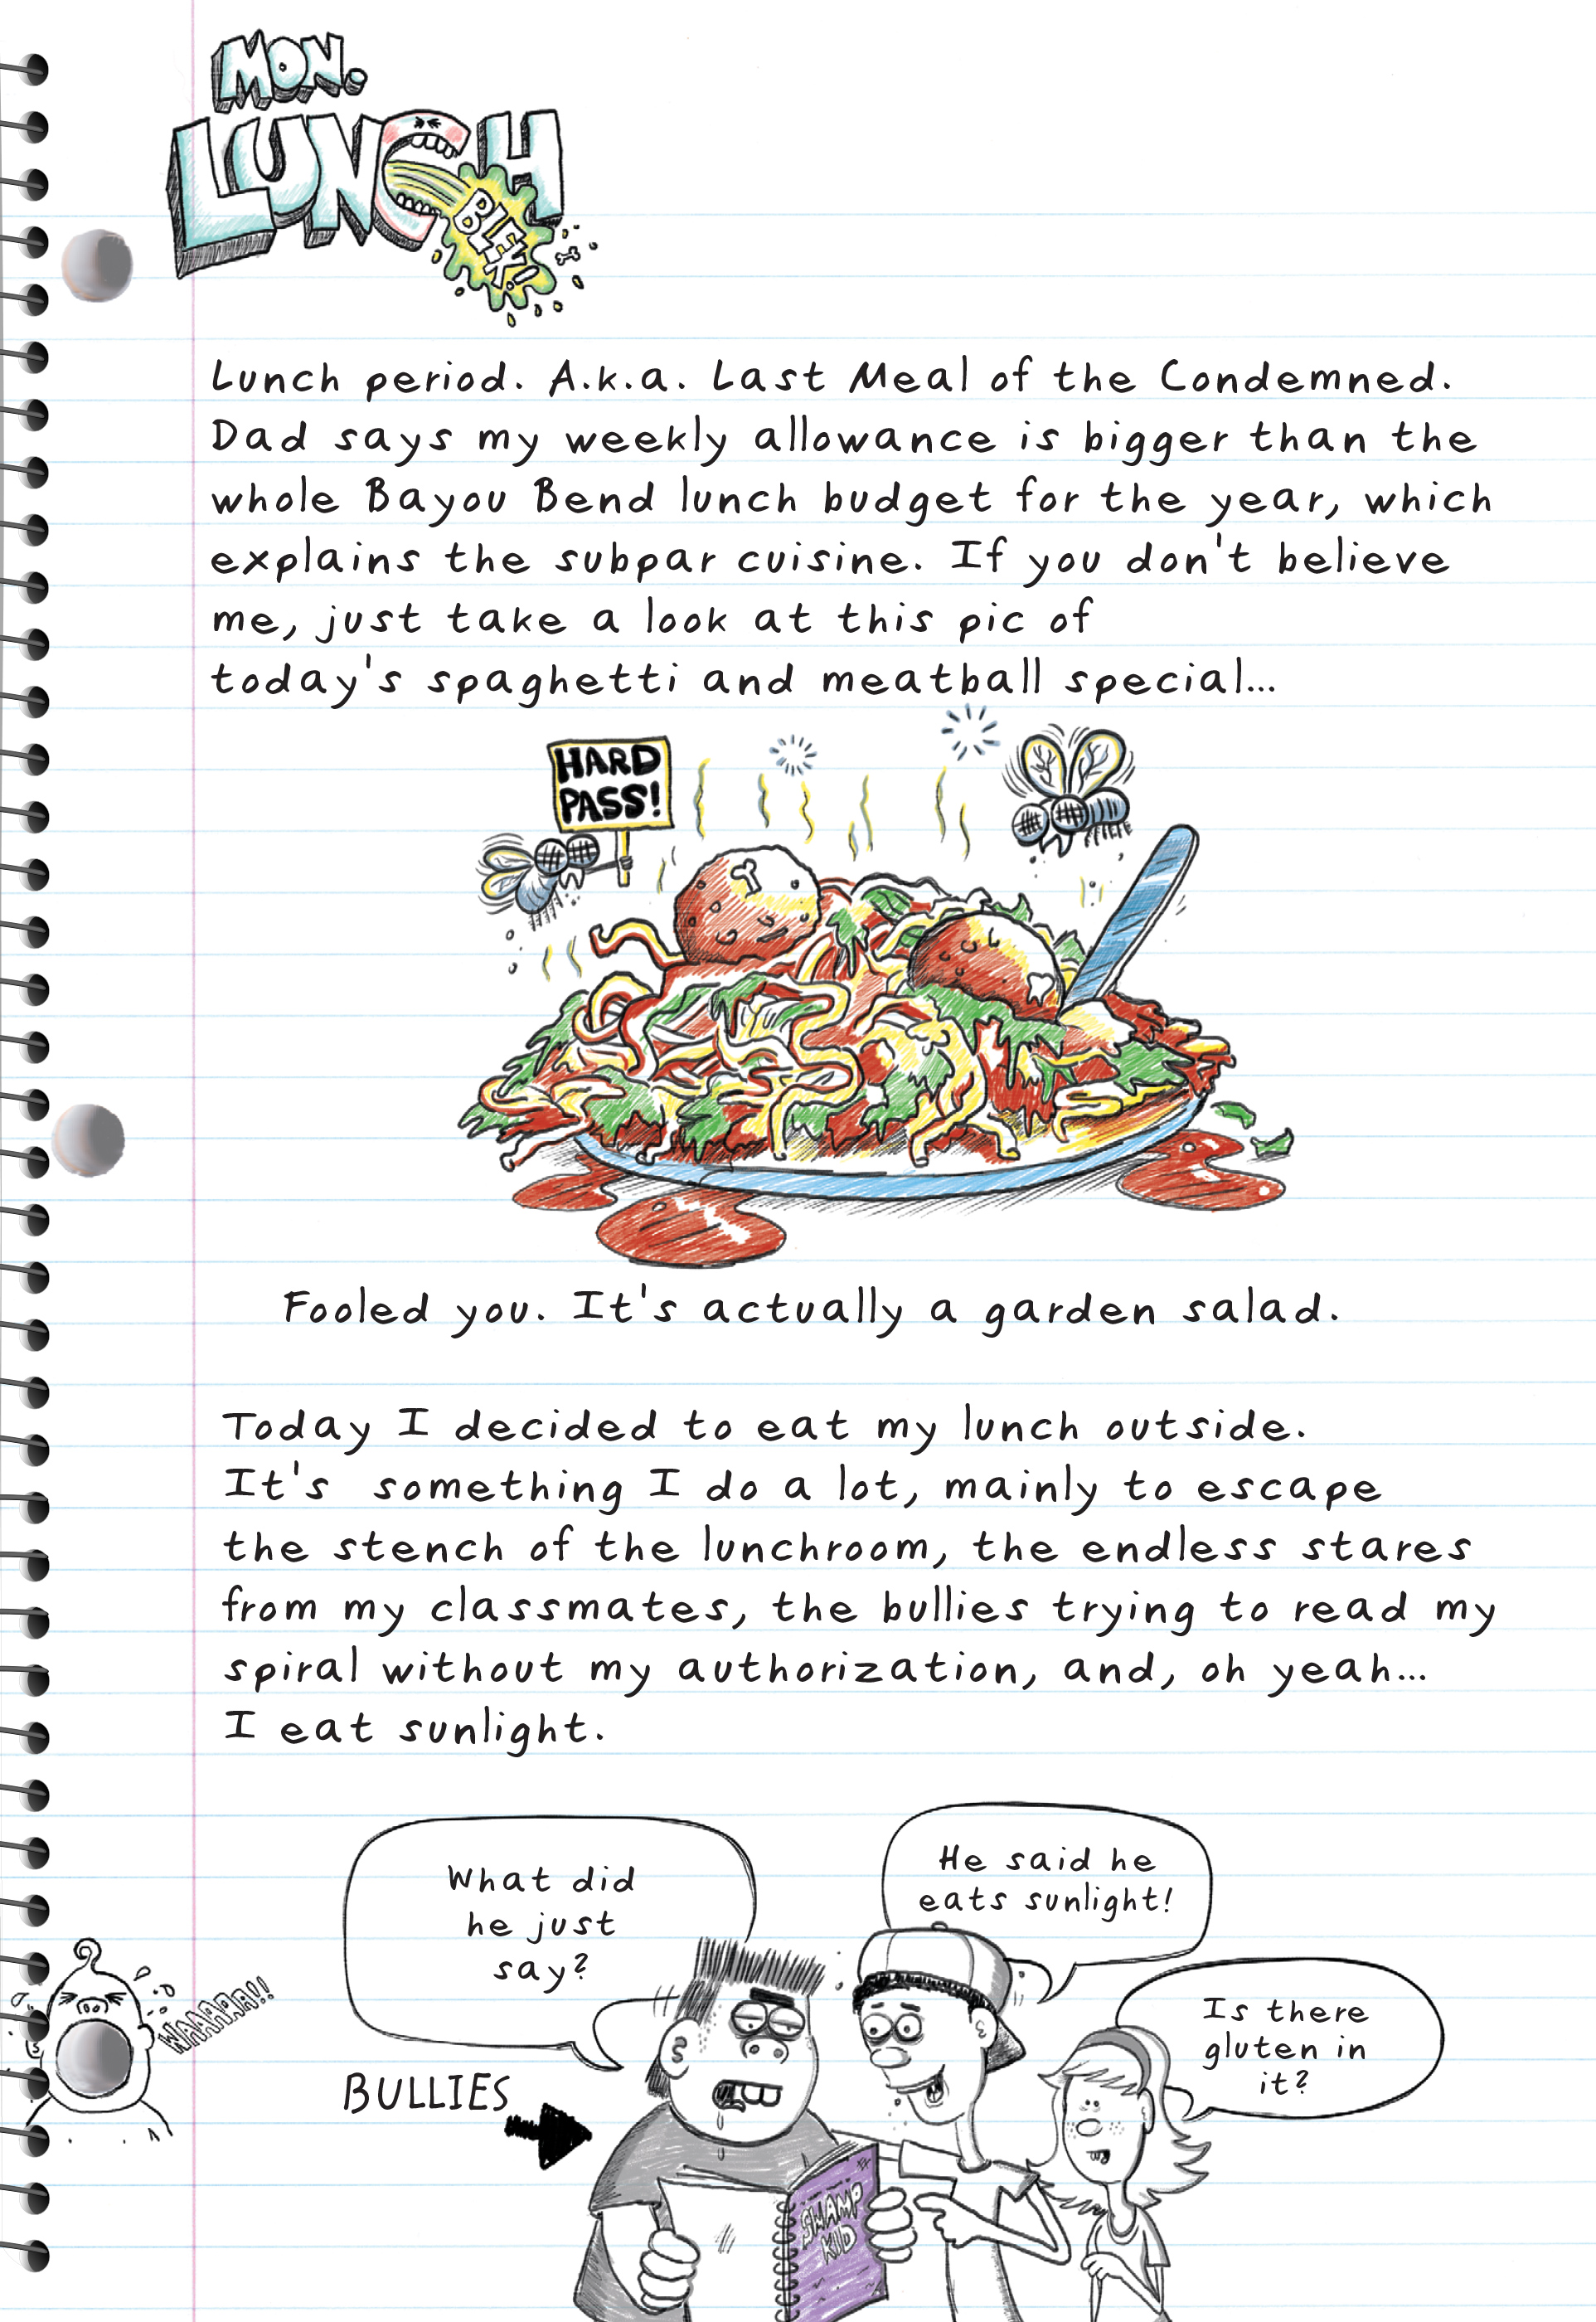 MON.
LUNCH
BLEK!
Lunch period. A.k.a. Last Meal of the Condemned.
Dad says my weekly allowance is bigger than the
whole Bayou Bend lunch budget for the year, which
explains the subpar cuisine. If you don't believe
me, just take a look at this pic of
today's spaghetti and meatball special...
HARD
PASS!
Fooled you. It's actually a garden salad.
Today I decided to eat my lunch outside.
It's something I do a lot, mainly to escape
the stench of the lunchroom, the endless stares
from my classmates, the bullies trying to read my
spiral without my authorization, and, oh yeah...
I eat sunlight.
What did
he just
say?
He said he
eats sunlight!
Is there
gluten in
it?
WAAAAAA!!
BULLIES
SWAMP
KID